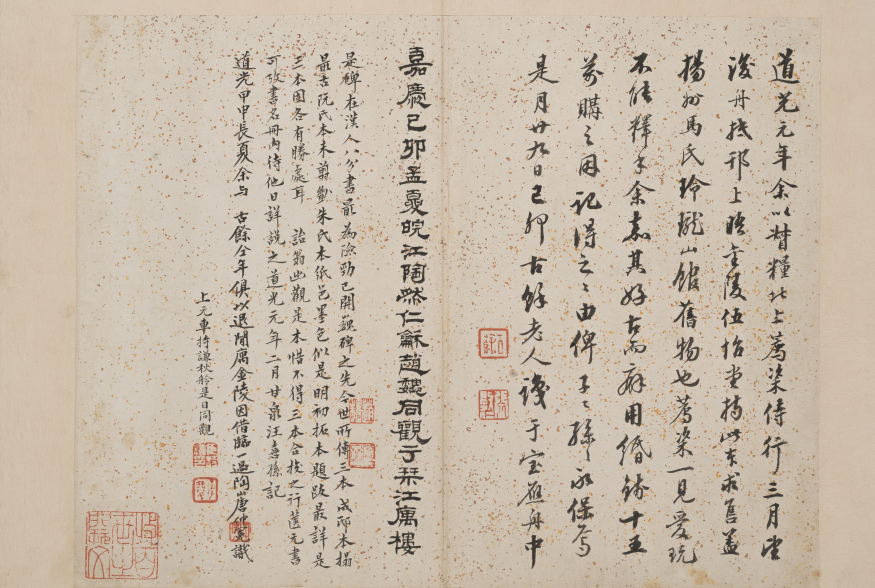 道光元年余以督糧北上薦染侍行三月望
後舟抵邗上晤金陵伍詒堂持此本求售蓋
揚州馬氏玲瓏山館舊物也薦染一見愛玩
不能釋手余嘉其好古而癖用緡錢十五
萬購之因記得之之由俾子子孫孫永保焉
是月廿九日己卯古餘老人識于宝應舟中
嘉慶己卯孟夏皖江陶然仁龢趙魏同觀于邗江寓樓
是碑在漢人八分書最為險勁已開魏碑之先今世所傳三本成邸本搨
最古阮氏本未翦勦朱氏本紙色墨色似是明初拓本題跋最詳是
三本固各有勝處耳 詒翁出觀是本惜不得三本合校之行篋元書
可攷書名冊內待他日詳說之道光元年二月甘泉汪喜孫記
道光甲申長夏余与 古餘仝年俱以退閒寓金陵因借臨一過陶山唐仲冕識
上元車持謙秋舲是日同觀